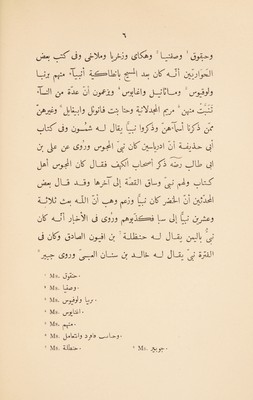 ٦
وحبقوق¹ وصفنيا² وهكاى وزخريا وملاخى وفى كتب بعض
الحواريّين أنّه كان بعد المسيح بانطاكية أنبيآء منهم برنبا
ولوقيوس³ وماثانيل واغابوس⁴ ويزعمون أنّ عدّة من النسآء
تَنَبَّتْ منهن⁵ مريم المجدلانية وحنا بنت فانوئل وابيغايل⁶ وغيرهنّ
ممّن ذكرنا أسمآءهنّ وذكروا نبيًا يقال له شمسون وفى كتاب
أبى حذيفة أنّ ادرياسين كان نبىّ المجوس وروى عن على بن
ابى طالب رضّه ذكر أصحاب الكهف فقال كان المجوس أهل
كتاب ولهم نبىّ وساق القصّة إلى آخرها وقد قال بعض
المحدّثين أنّ الخضر كان نبيًا وزعم وهب أنّ اللّه بعث ثلاثة
وعشرين نبيًّا إلى سبا فكذّبوهم وروى فى الأخبار أنّه كان
نبىٌّ باليمن يقال له حنظلة⁷ بن افيون الصادق وكان فى
الفترة نبىّ يقال له خالد بن سنان العبسىّ وروى جبير⁸
¹ Ms. حنقوق.
² Ms. وصفيا.
³ Ms. ربيا ولوفيوس.
⁴ Ms. اغنايوس.
⁵ Ms. منهم.
⁶ Ms.
⁷ Ms. حنطلة.
⁸ Ms. جويبر.